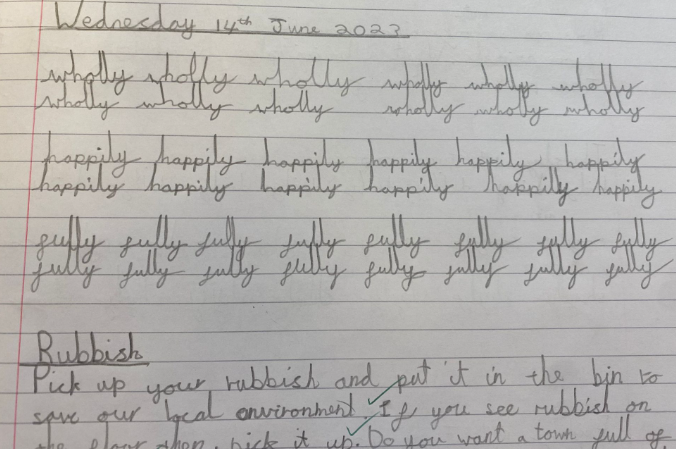 Wednesday 14th June 2023
wholly wholly wholly wholly wholly wholly
wholly wholly wholly wholly wholly wholly
happily happily happily happily happily happily
happily happily happily happily happily happily
fully fully fully fully fully fully fully fully
fully fully fully fully fully fully fully fully
Rubbish
Pick up your rubbish and put it in the bin to
save our local environment. If you see rubbish on
the floor then, pick it up. Do you want a town full of